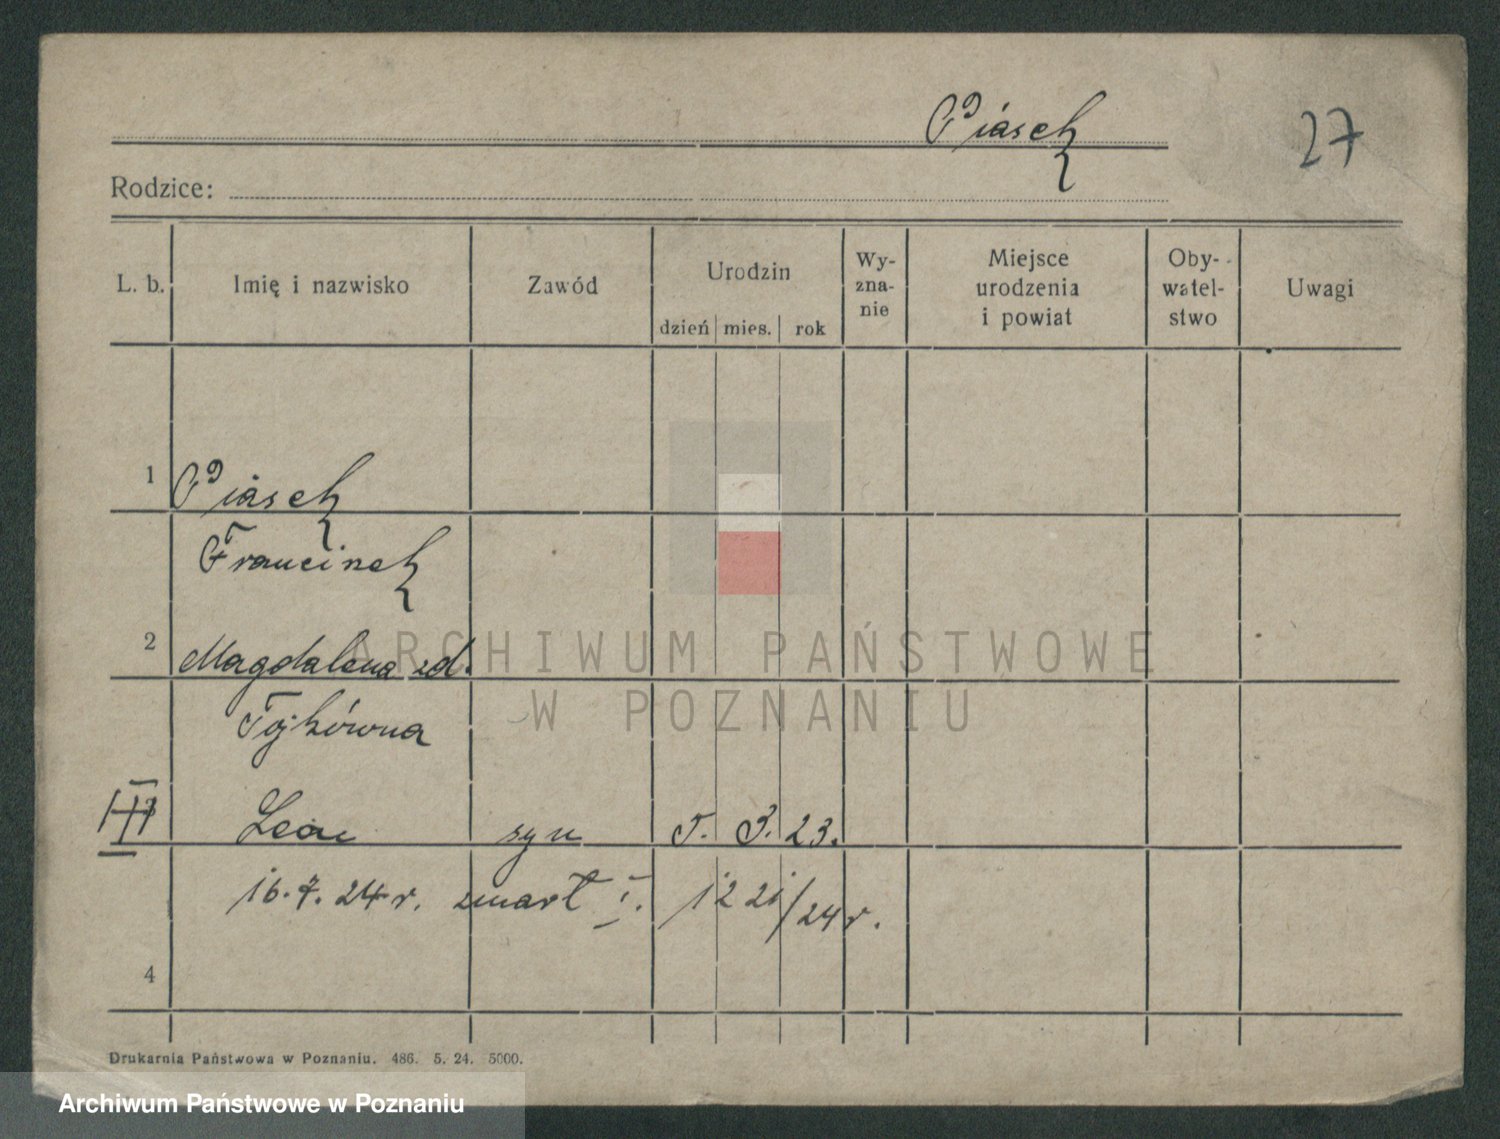 Piasek
27
Rodzice:
L. b. Imię i nazwisko Zawód Urodzin dzień mies. rok Wy-zna-nie Miejsce urodzenia i powiat Oby-watel-stwo Uwagi
1 Piasek
Franciszek
2 Magdalena zd.
Tojkówna
III Leon syn 5. 3. 23.
16. 7. 24 r. zmarł I. 1221/24 r.
4
Drukarnia Państwowa w Poznaniu. 486. 5. 24. 5000.
ARCHIWUM PAŃSTWOWE
W POZNANIU
Archiwum Państwowe w Poznaniu